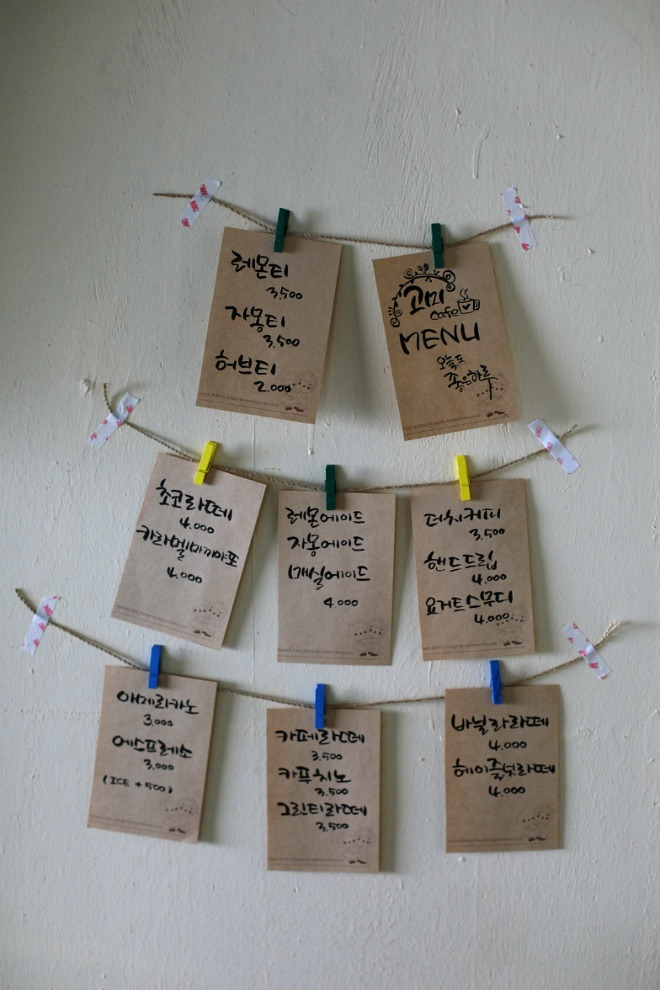 레몬티
3,500
자몽티
3,500
허브티
2,000
고미
cafe
MENU
오늘도
좋은하루
쵸코라떼
4,000
카라멜마끼야또
4,000
레몬에이드
자몽에이드
매실에이드
4,000
더치커피
3,500
핸드드립
4,000
요거트스무디
4,000
아메리카노
3,000
에스프레소
3,000
(ICE + 500)
카페라떼
3,500
카푸치노
3,500
그린티라떼
3,500
바닐라라떼
4,000
헤이즐넛라떼
4,000